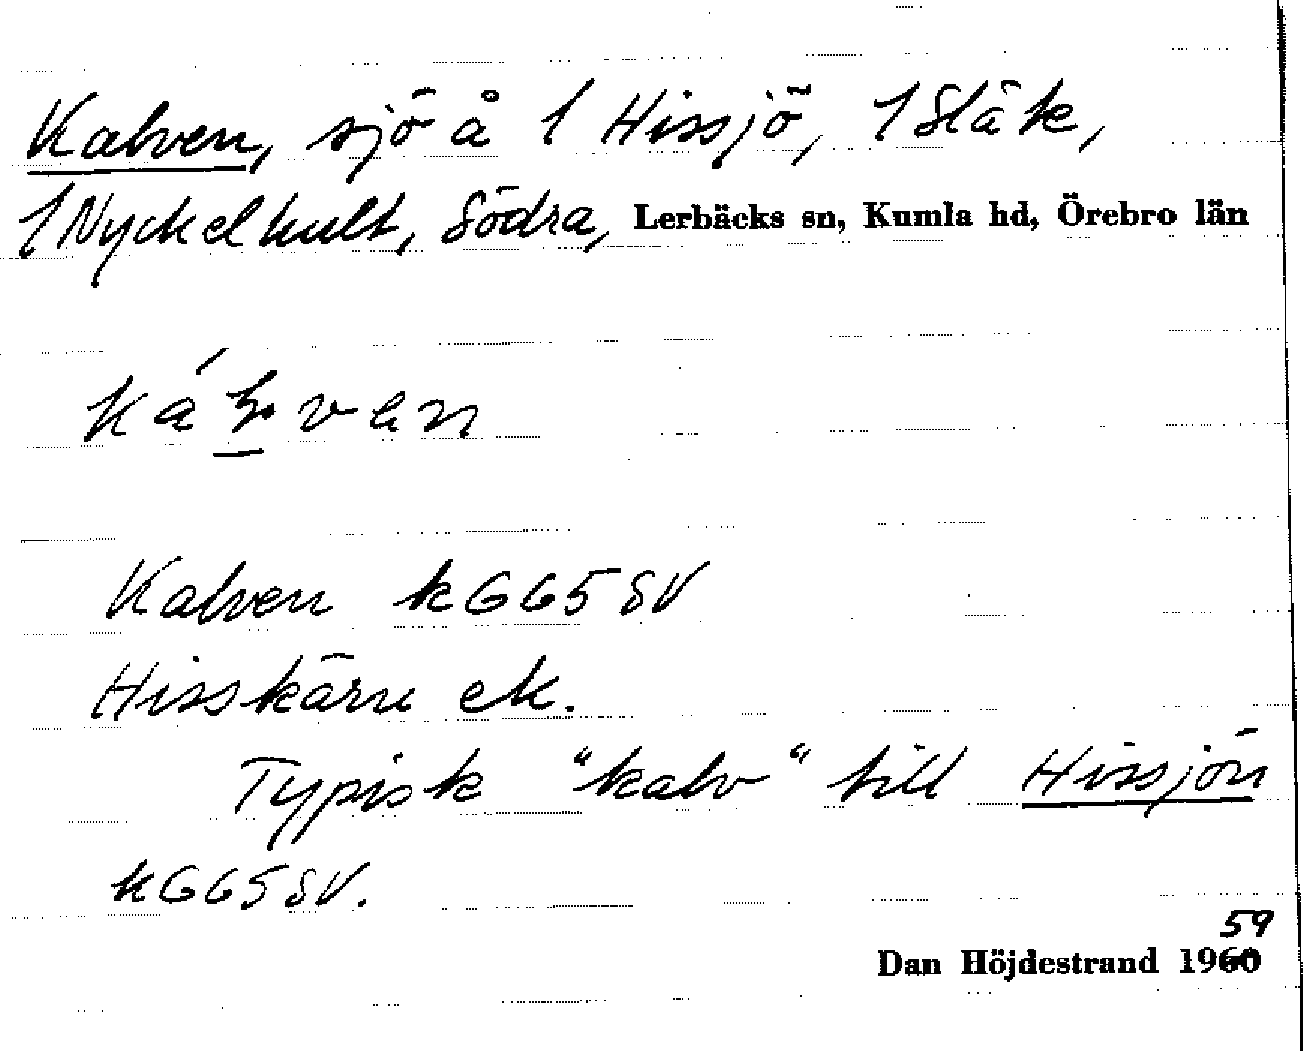 Kalven, sjö å 1 Hissjö, 1 Släk,
1 Nyckelhult, Södra, Lerbäcks sn, Kumla hd, Örebro län
Kalven kG65SV
Hisskärn ek.
Typisk "kalv" till Hissjön
kG65SV.
59
Dan Höjdestrand 1960